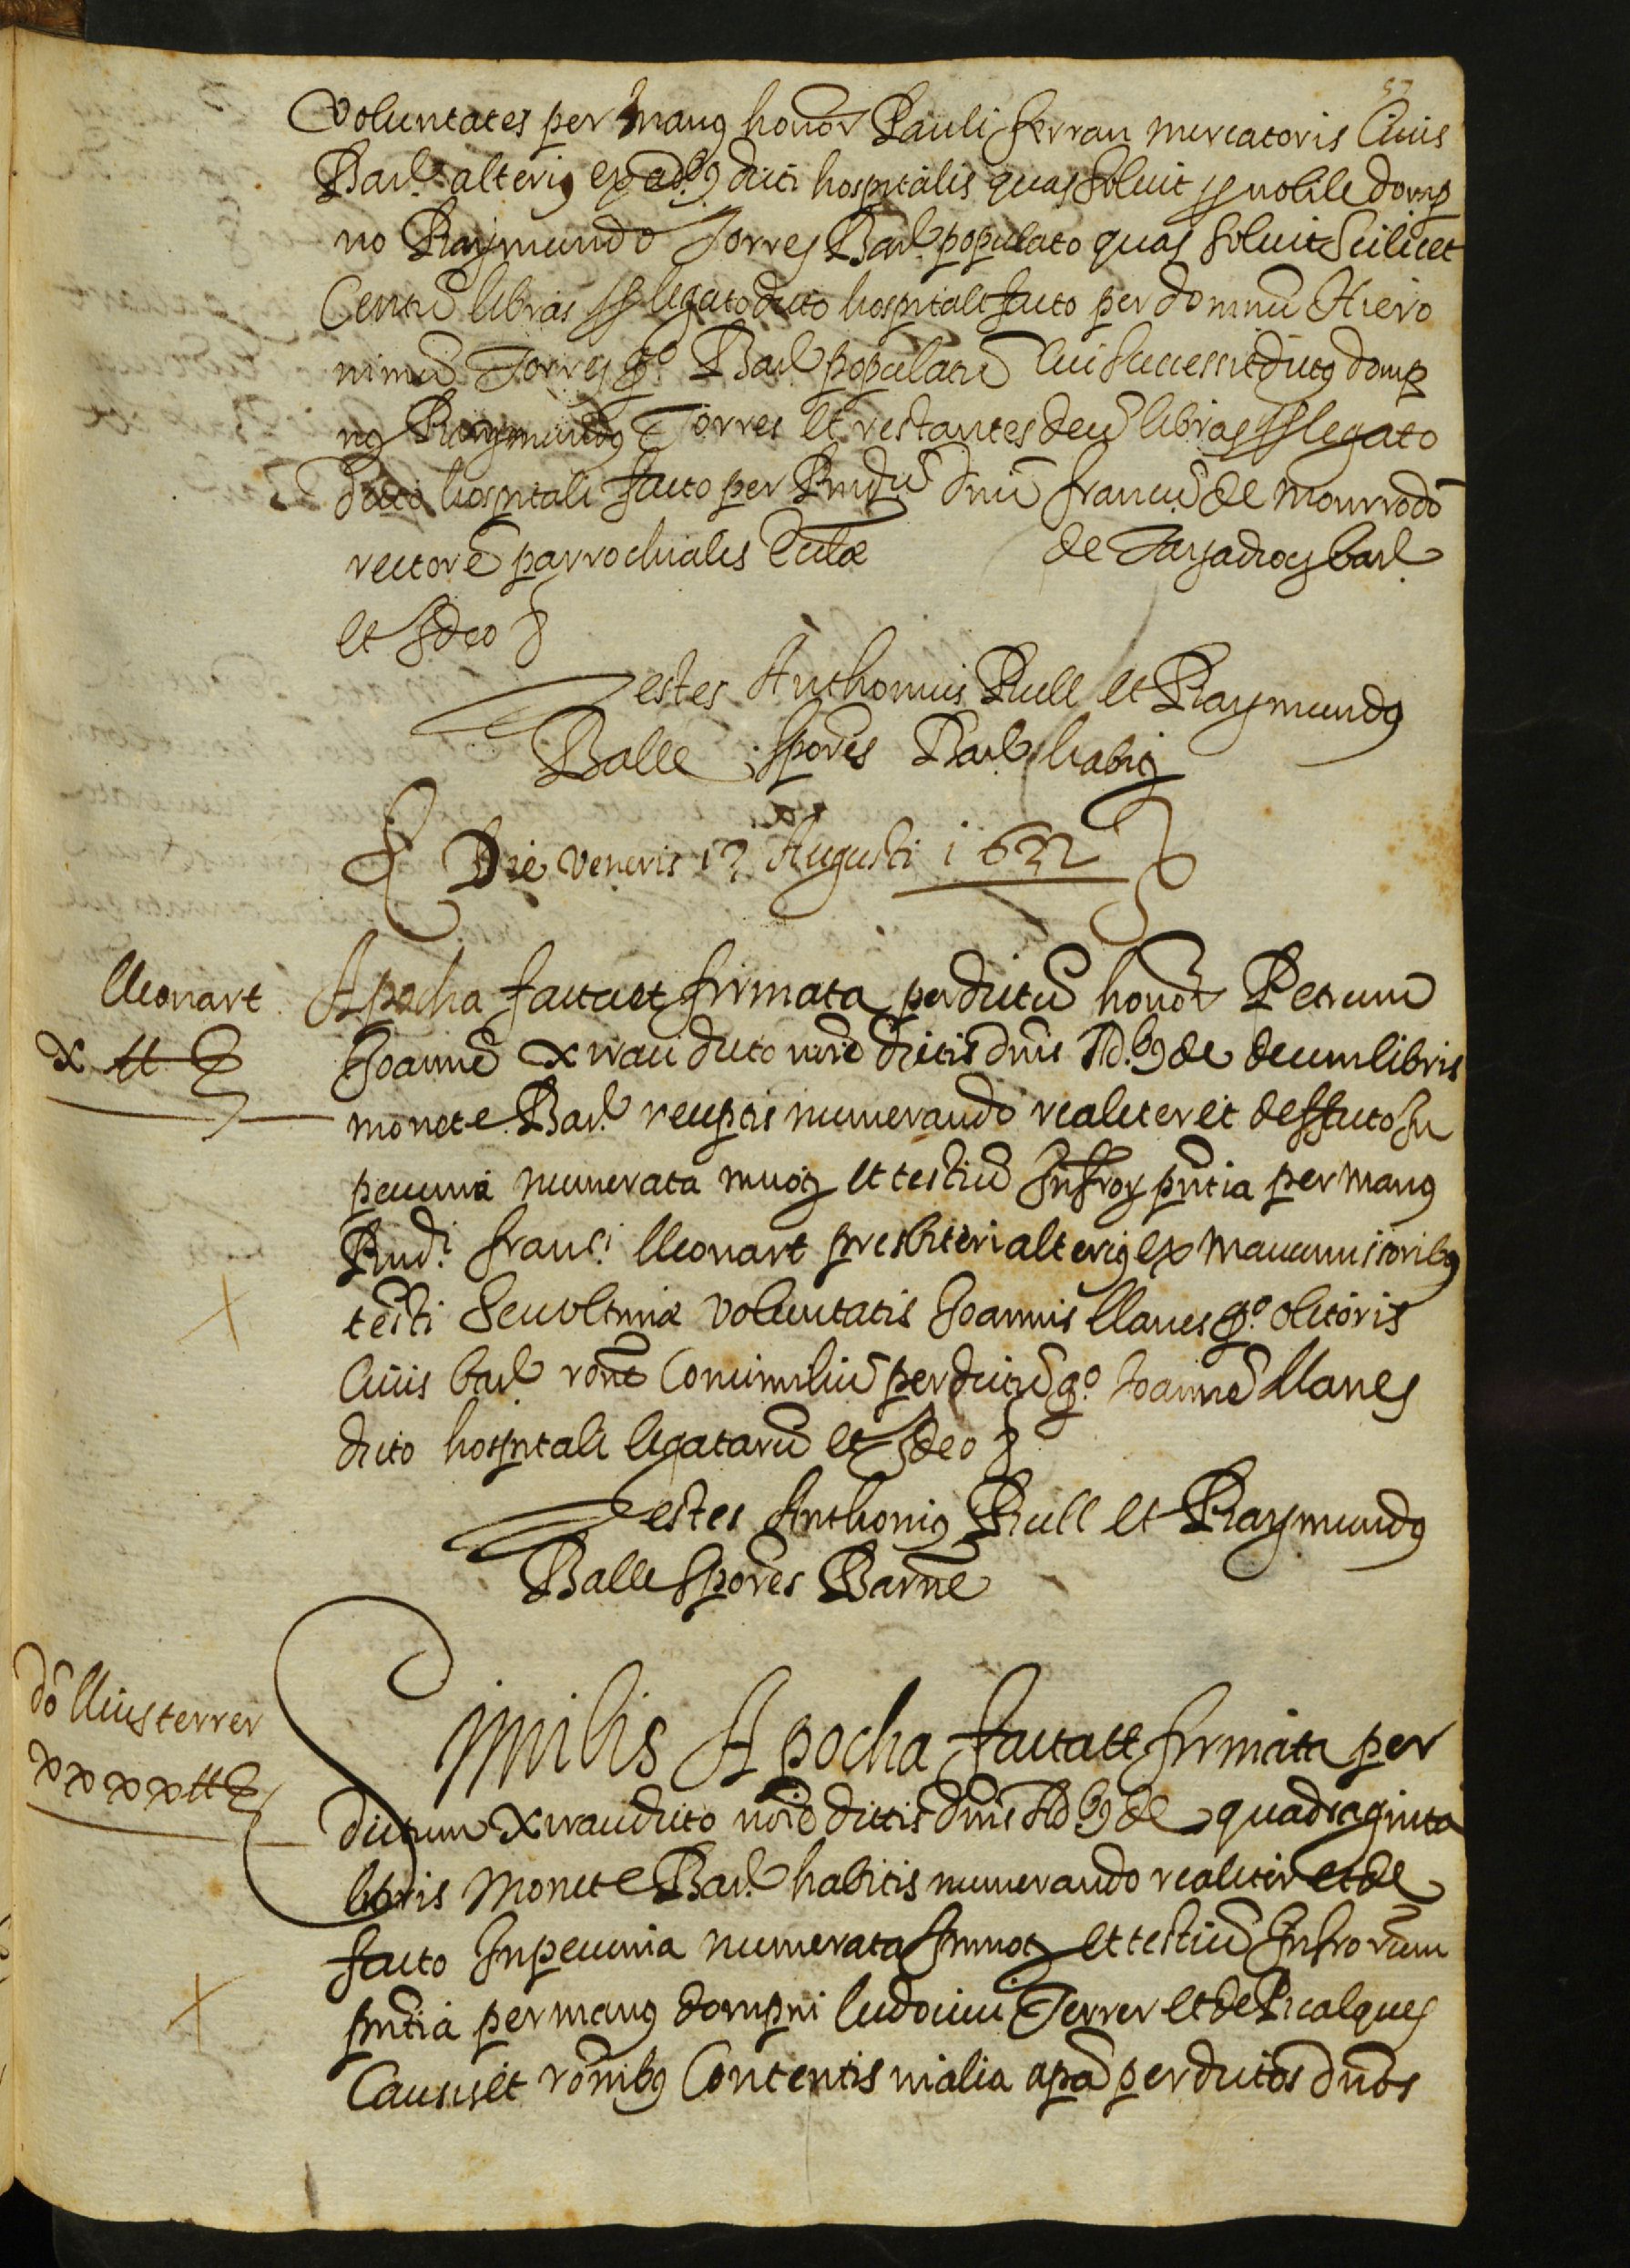 57
voluntates per manus honor Pauli ferran mercatoris Civis
Bar.e alterius ex Ad.bus dicti hospitalis quas soluit pro nobile domp
no Raymundo Torres Bar. populato quas soluit Scilicet
Centũ libras pro legato dicto hospitali facto per dominũ Hiero
nimũ Torres q.o Bar. populatũ Cui successit dictus domp
nus Raymundus Torres et restantes decẽ libras pro legato
dicto hospitali facto per Rndũ dnũ francũ de Monrrodõ
rectorẽ parrochialis Ecclæ de Bar.
et Ideo &
Testes Anthonius Rull et Raymundus
Balle spores Bar. habit
Die Veneris 12 Augusti 1622
Lleonart
x ll
Apocha facta et firmata per dictũ honor Petrum
Joannẽ Xirau dicto noīe dictis dnis Ad.bus de decem libris
monete Bar. receptis numerando realiter et deffacto In
pecunia numerata mnoq et testiũ Infror pñtia per manus
Rndi. franci. lleonart presbiteri alterius ex manumissoribus
testi Seu ultimæ voluntatis Joannis llanes q.o olitoris
Civis bar. rone Consimiliũ per dictũ q.o Joannẽ llanes
dicto hospitali legatarũ et Ideo &
Testes Anthonius Rull et Raymundus
Balle spores Barñe
dõ lluis terrer
xxxx ll
Similis Apocha facta et firmata per
dictum Xirau dicto noīe dictis dnis Ad.bus de quadraginta
libris Monete Bar. habitis numerando realiter et de
facto In pecunia numerata In mnoq et testiũ Infrorum
pñtia per manus dompni ludovici Terrer et de Picalques
Causis et ronibus Contentis in alia apã per dictos dños